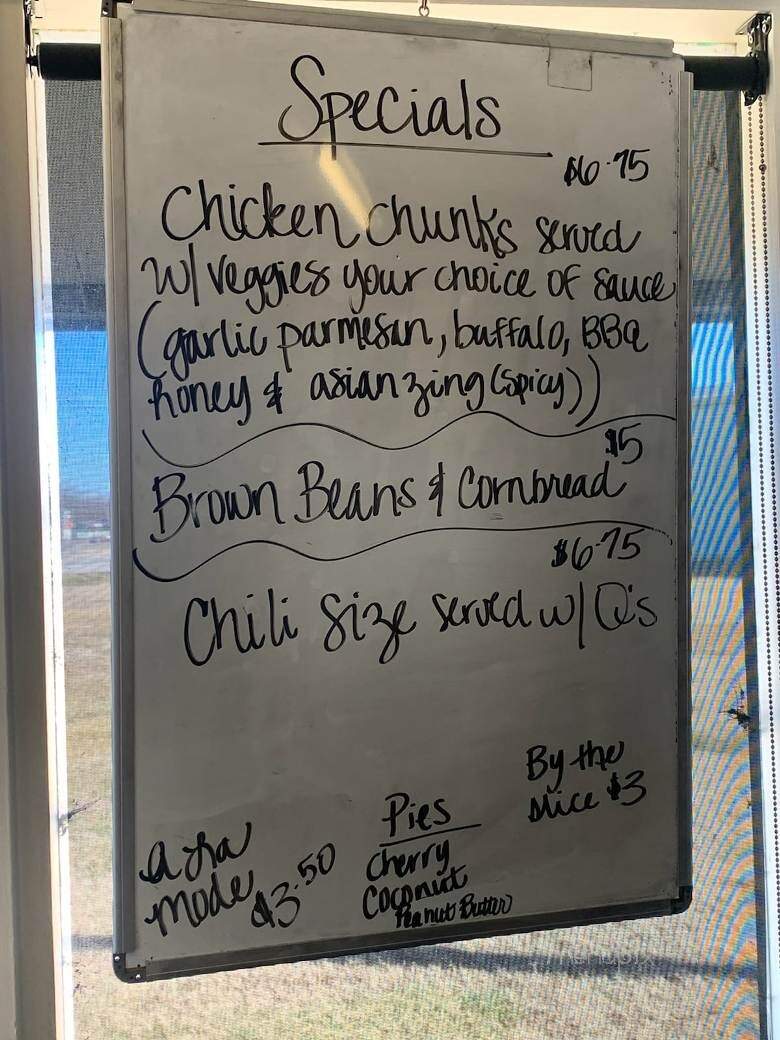 Specials
$6.75
Chicken chunks served
w/ veggies your choice of sauce
(garlic parmesan, buffalo, BBQ
honey & asian zing (spicy))
$5
Brown Beans & Cornbread
$6.75
Chili Size served w/ Q's
By the
slice $3
Pies
Cherry
Coconut
Peanut Butter
a la
mode $3.50